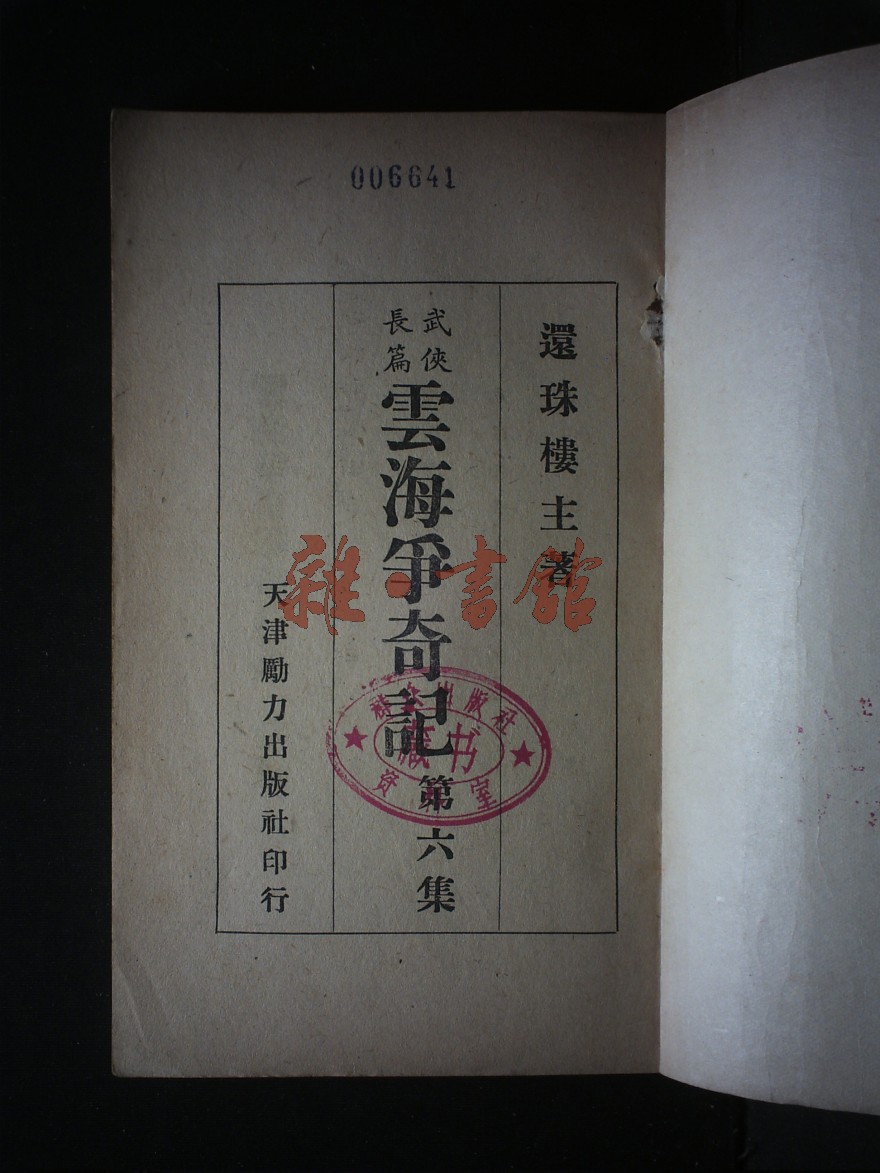 006641
還珠樓主著
武俠
長篇
雲海爭奇記
第六集
天津勵力出版社印行
雜·書館
出版社
藏书
资料室